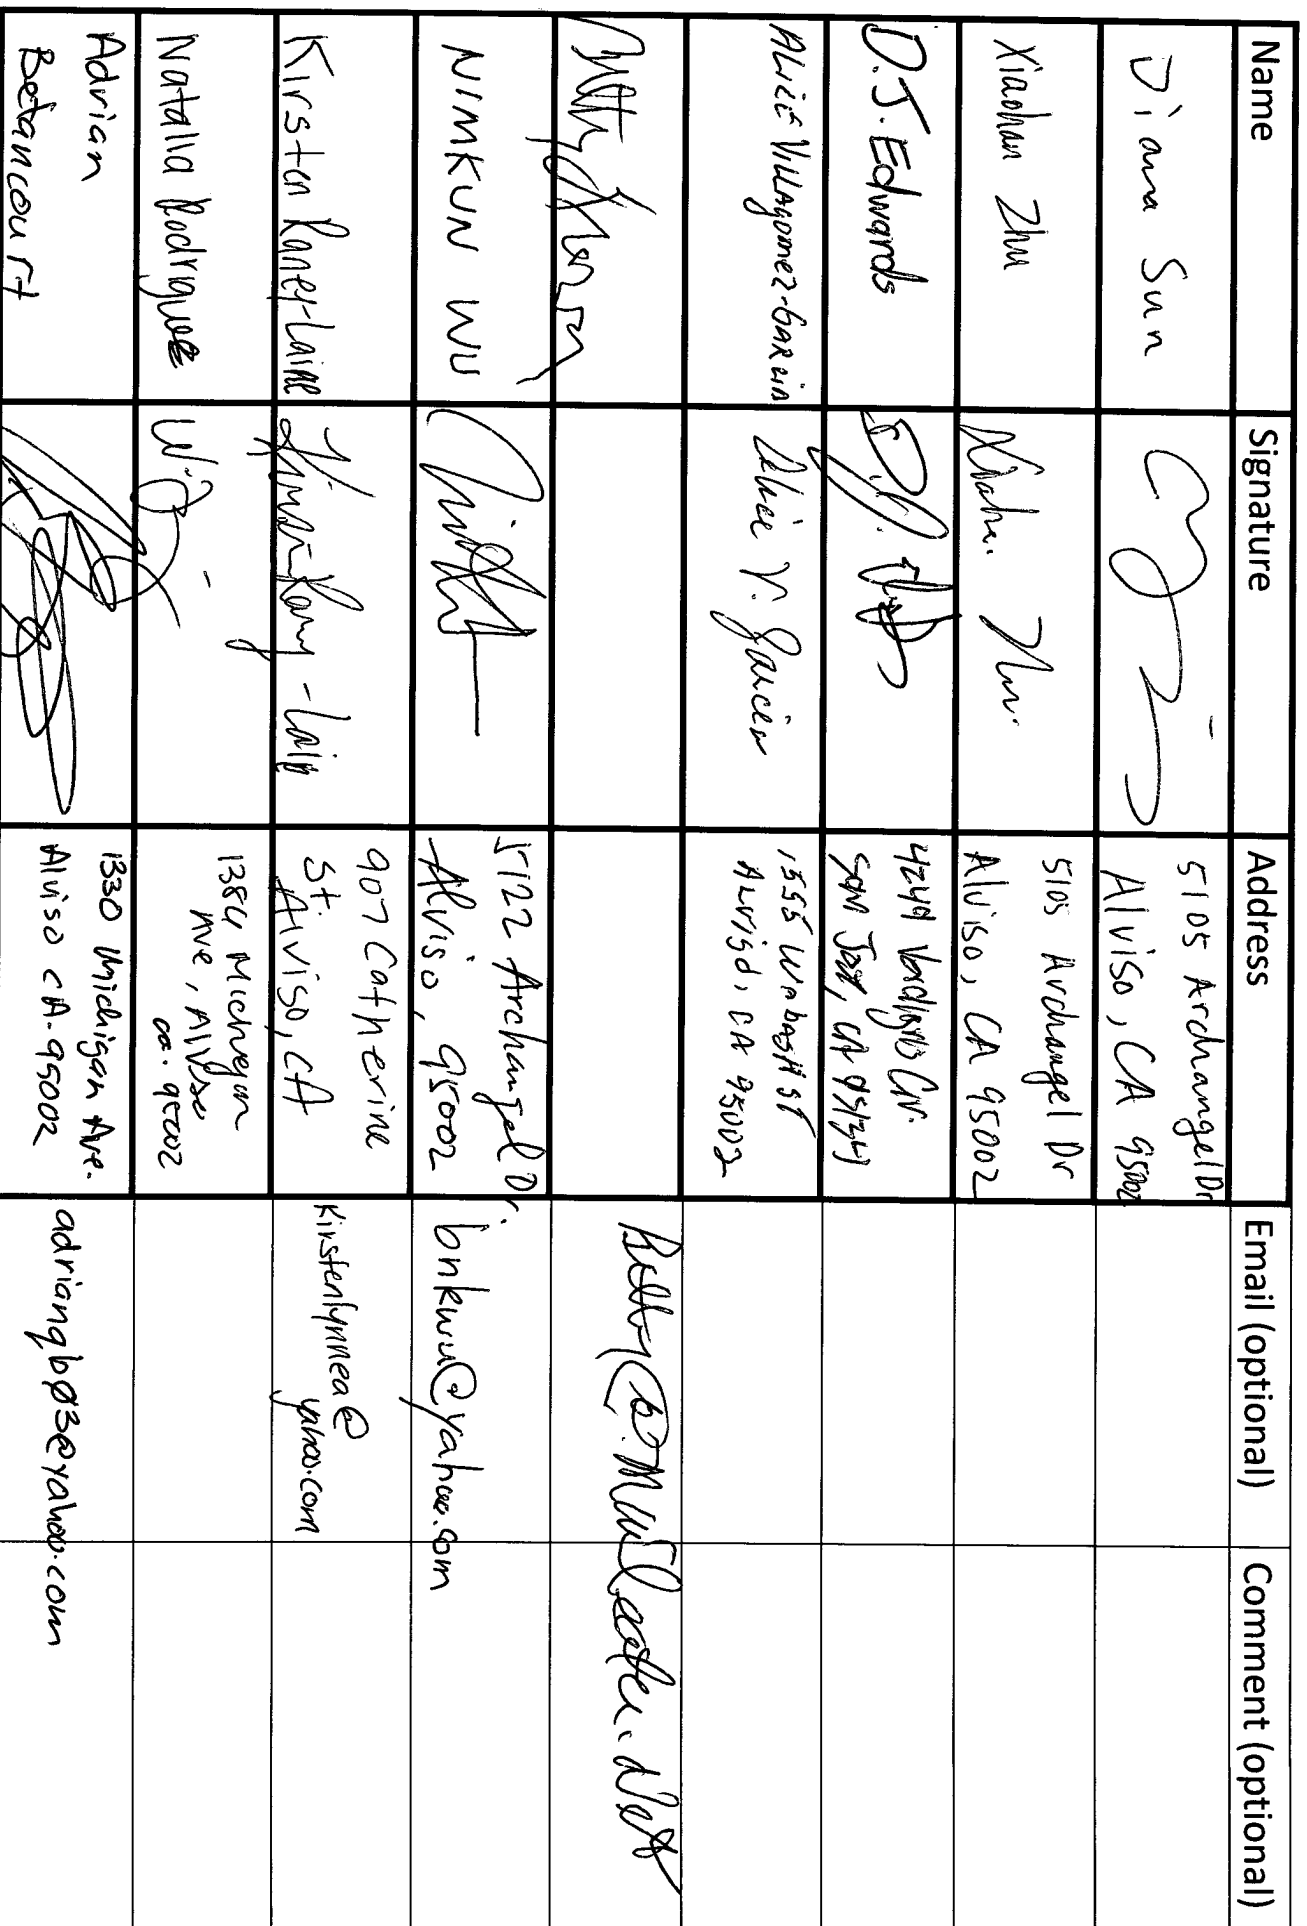 Name Signature Address Email (optional) Comment (optional)
Diana Sun
5105 Archangel Dr
Alviso, CA 95002
Xiaohan Zhu
5105 Archangel Dr
Alviso, CA 95002
D.J. Edwards
San Jose, CA
ALICE VILLAGOMEZ-GARCIA
Alice V. Garcia
1555 WABASH ST
ALVISO, CA 95002
NIMKUN WU
5122 Archangel Dr.
Alviso, 95002
bnkwu@yahoo.com
Kirsten Raney-Laine
907 Catherine
St.
Alviso, CA
kirstenlynnea@
yahoo.com
Natalia Rodriguez
Michegan
Ave, Alviso
ca. 95002
Adrian
Betancourt
1330 Michigan Ave.
Alviso CA. 95002
adrianqb03@yahoo.com